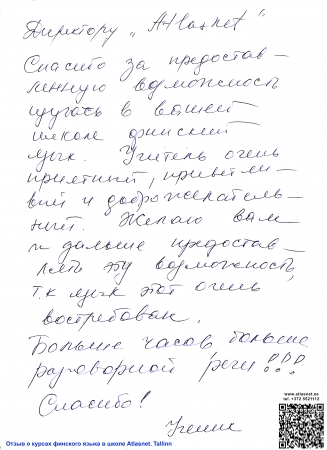 Директору „Atlasnet“
Спасибо за предостав-
ленную возможность
изучать в вашей
школе финский
язык. Учитель очень
приятный, приветли-
вый и доброжелатель-
ный. Желаю вам
и дальше предостав-
лять эту возможность,
т.к язык этот очень
востребован.
Больше часов больше
разговорной речи!!!
Спасибо!
Ученик
www.atlasnet.ee
tel. +372 5521112
Отзыв о курсах финского языка в школе Atlasnet, Tallinn